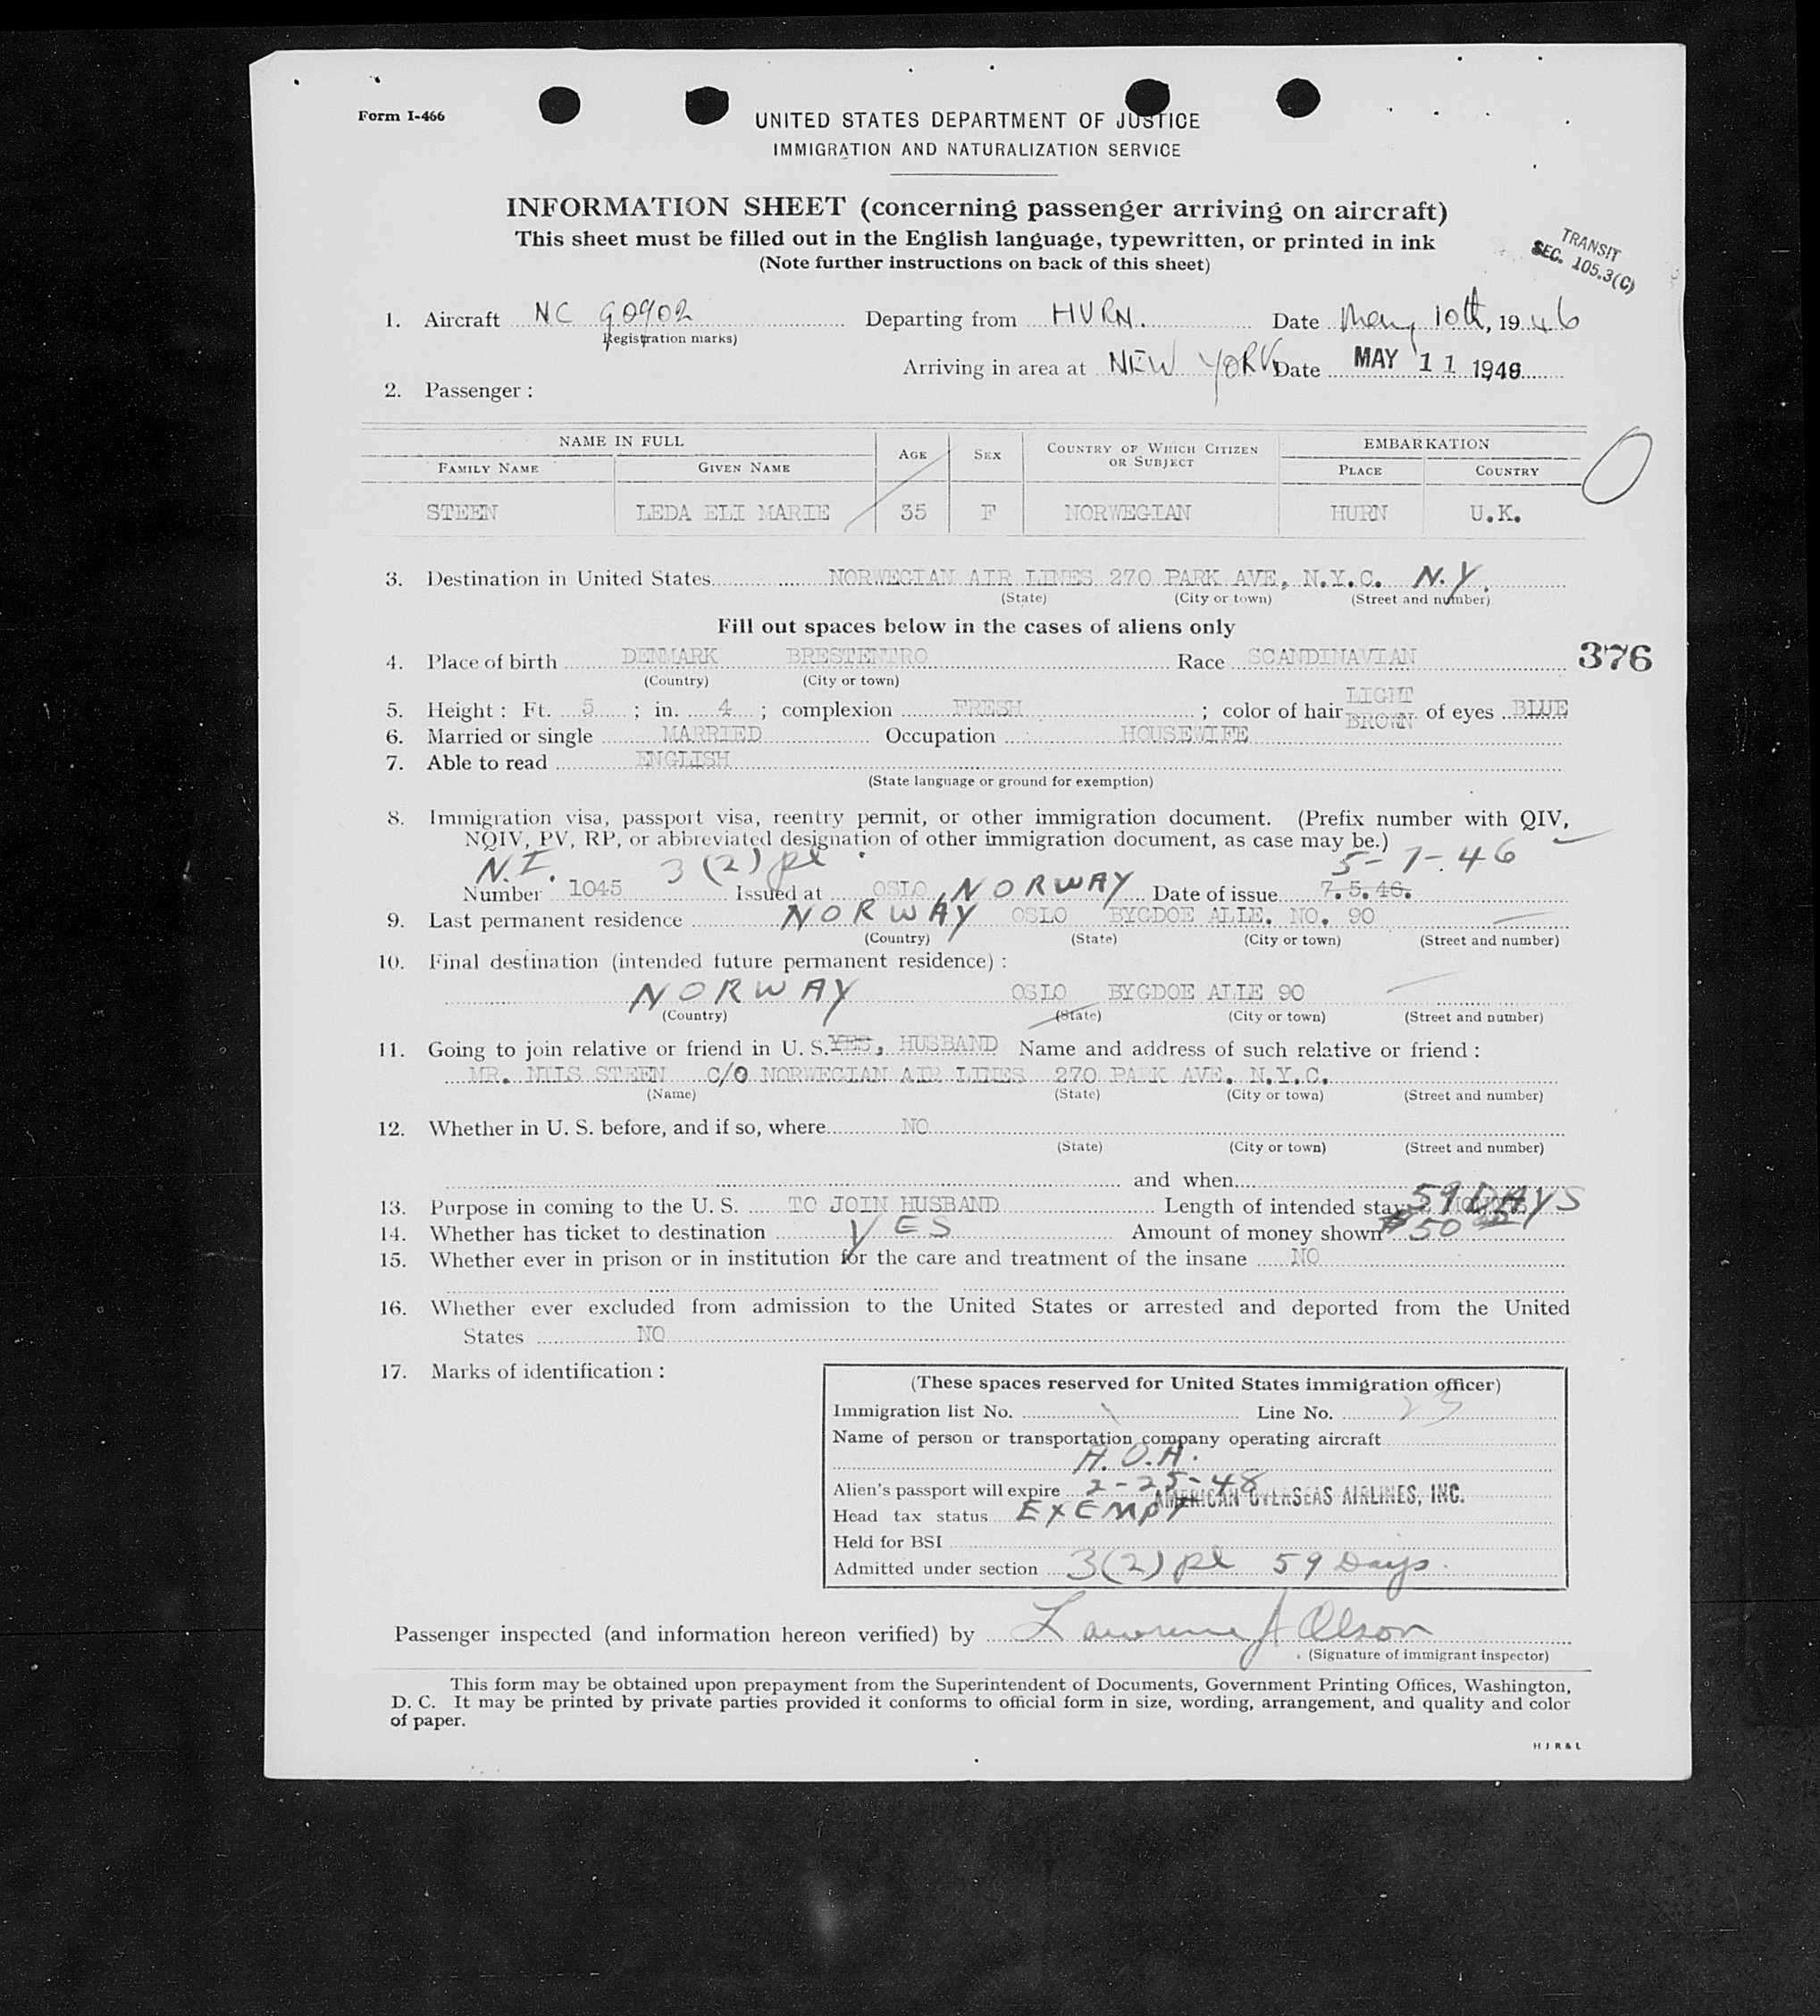 Form I-466
UNITED STATES DEPARTMENT OF JUSTICE
IMMIGRATION AND NATURALIZATION SERVICE
INFORMATION SHEET (concerning passenger arriving on aircraft)
This sheet must be filled out in the English language, typewritten, or printed in ink
(Note further instructions on back of this sheet)
TRANSIT
SEC. 105.3(C)
1. Aircraft NC 90902 Departing from HURN. Date May 10th, 1946
(Registration marks)
Arriving in area at NEW YORK Date MAY 11 1946
2. Passenger :
NAME IN FULL AGE SEX COUNTRY OF WHICH CITIZEN OR SUBJECT EMBARKATION
FAMILY NAME GIVEN NAME PLACE COUNTRY
STEEN LEDA ELI MARIE 35 F NORWEGIAN HURN U.K.
3. Destination in United States NORWEGIAN AIR LINES 270 PARK AVE, N.Y.C. N.Y.
(State) (City or town) (Street and number)
Fill out spaces below in the cases of aliens only
4. Place of birth DENMARK BRESTENTRO Race SCANDINAVIAN 376
(Country) (City or town)
5. Height : Ft. 5 ; in. 4 ; complexion FRESH ; color of hair LIGHT BROWN of eyes BLUE
6. Married or single MARRIED Occupation HOUSEWIFE
7. Able to read ENGLISH
(State language or ground for exemption)
8. Immigration visa, passport visa, reentry permit, or other immigration document. (Prefix number with QIV,
NQIV, PV, RP, or abbreviated designation of other immigration document, as case may be.)
N.I. 3(2) pl 5-7-46
Number 1045 Issued at OSLO, NORWAY Date of issue 7.5.46.
9. Last permanent residence NORWAY OSLO BYGDOE ALLE. NO. 90
(Country) (State) (City or town) (Street and number)
10. Final destination (intended future permanent residence) :
NORWAY OSLO BYGDOE ALLE 90
(Country) (State) (City or town) (Street and number)
11. Going to join relative or friend in U. S. YES, HUSBAND Name and address of such relative or friend :
MR. NILS STEEN C/O NORWEGIAN AIR LINES 270 PARK AVE. N.Y.C.
(Name) (State) (City or town) (Street and number)
12. Whether in U. S. before, and if so, where NO
(State) (City or town) (Street and number)
and when
13. Purpose in coming to the U. S. TO JOIN HUSBAND Length of intended stay 59 DAYS
14. Whether has ticket to destination YES Amount of money shown $50
15. Whether ever in prison or in institution for the care and treatment of the insane NO
16. Whether ever excluded from admission to the United States or arrested and deported from the United
States NO
17. Marks of identification :
(These spaces reserved for United States immigration officer)
Immigration list No. Line No. 23
Name of person or transportation company operating aircraft
A.O.A.
Alien's passport will expire 2-25-48
AMERICAN OVERSEAS AIRLINES, INC.
Head tax status EXEMPT
Held for BSI
Admitted under section 3(2) pl 59 Days.
Passenger inspected (and information hereon verified) by Lawrence J Olson
(Signature of immigrant inspector)
This form may be obtained upon prepayment from the Superintendent of Documents, Government Printing Offices, Washington,
D. C. It may be printed by private parties provided it conforms to official form in size, wording, arrangement, and quality and color
of paper.
H J R & L